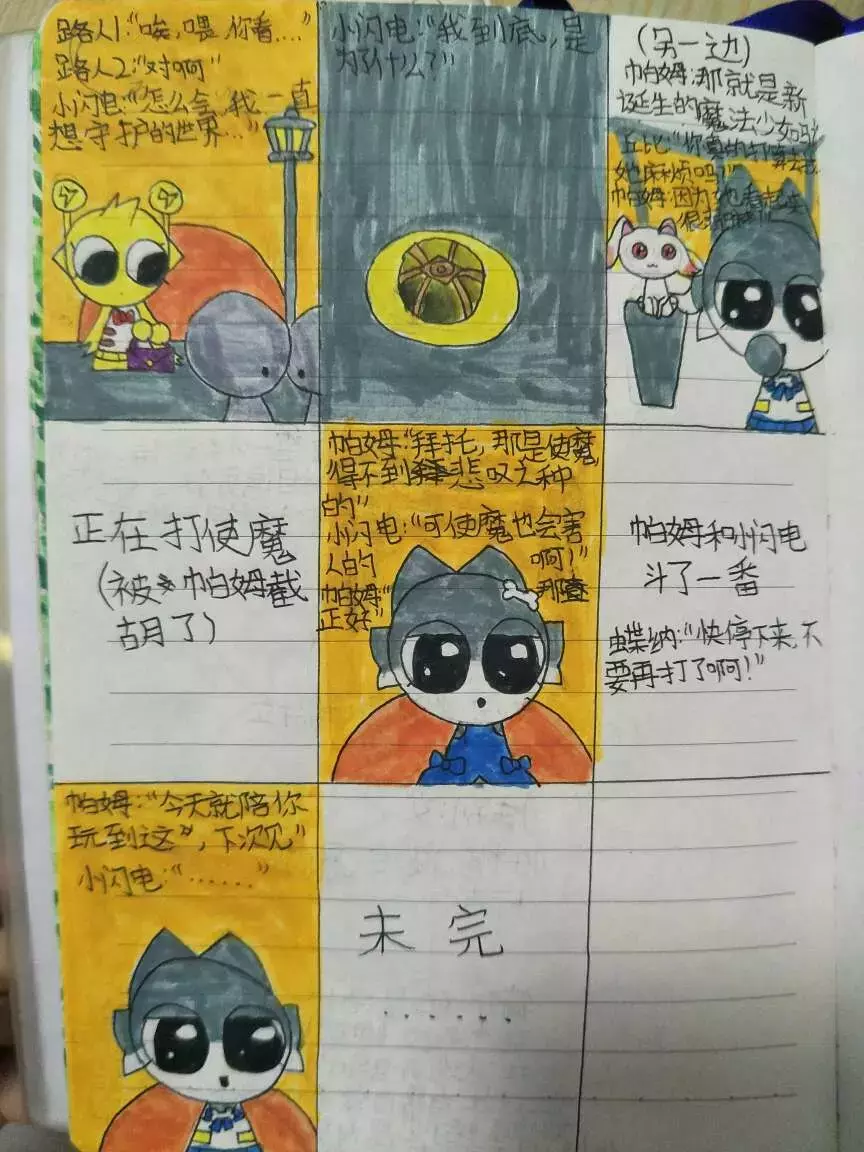 路人1:“唉,喂,你看....”
路人2:“对啊”
小闪电:“怎么会,我一直
想守护的世界...”
小闪电:“我到底,是
为了什么?”
(另一边)
帕姆:那就是新
诞生的魔法少女吗?
丘比:“你真的打算去找
她麻烦吗?”
帕姆:因为她看起来
很
正在打使魔
(被帕姆截
胡了)
帕姆:“拜托,那是使魔,
得不到悲叹之种
的”
小闪电:“可使魔也会害
人的 啊!”
帕姆“ 那
正好”
帕姆和小闪电
斗了一番
蝶纳:“快停下来,不
要再打了啊!”
帕姆:“今天就陪你
玩到这”,下次见”
小闪电:“......”
未完
......